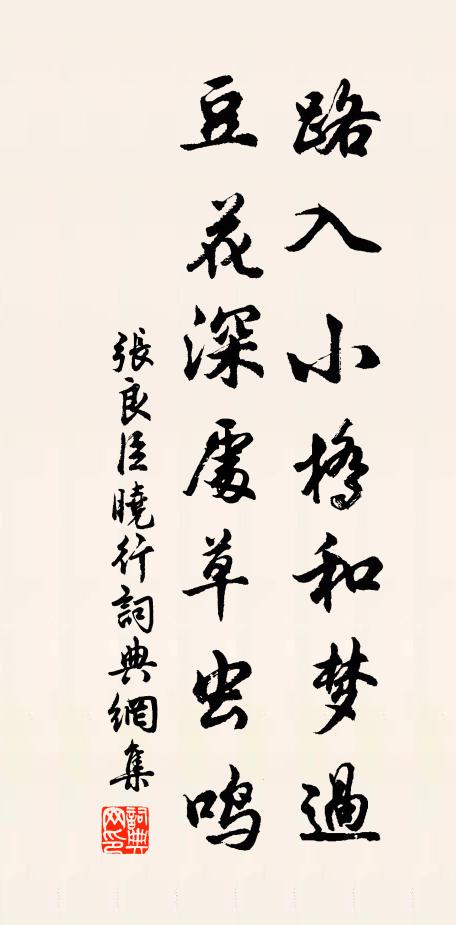 路入小橋和梦過
豆花深處草虫鸣
張良臣曉行詞典網集
詞典网印